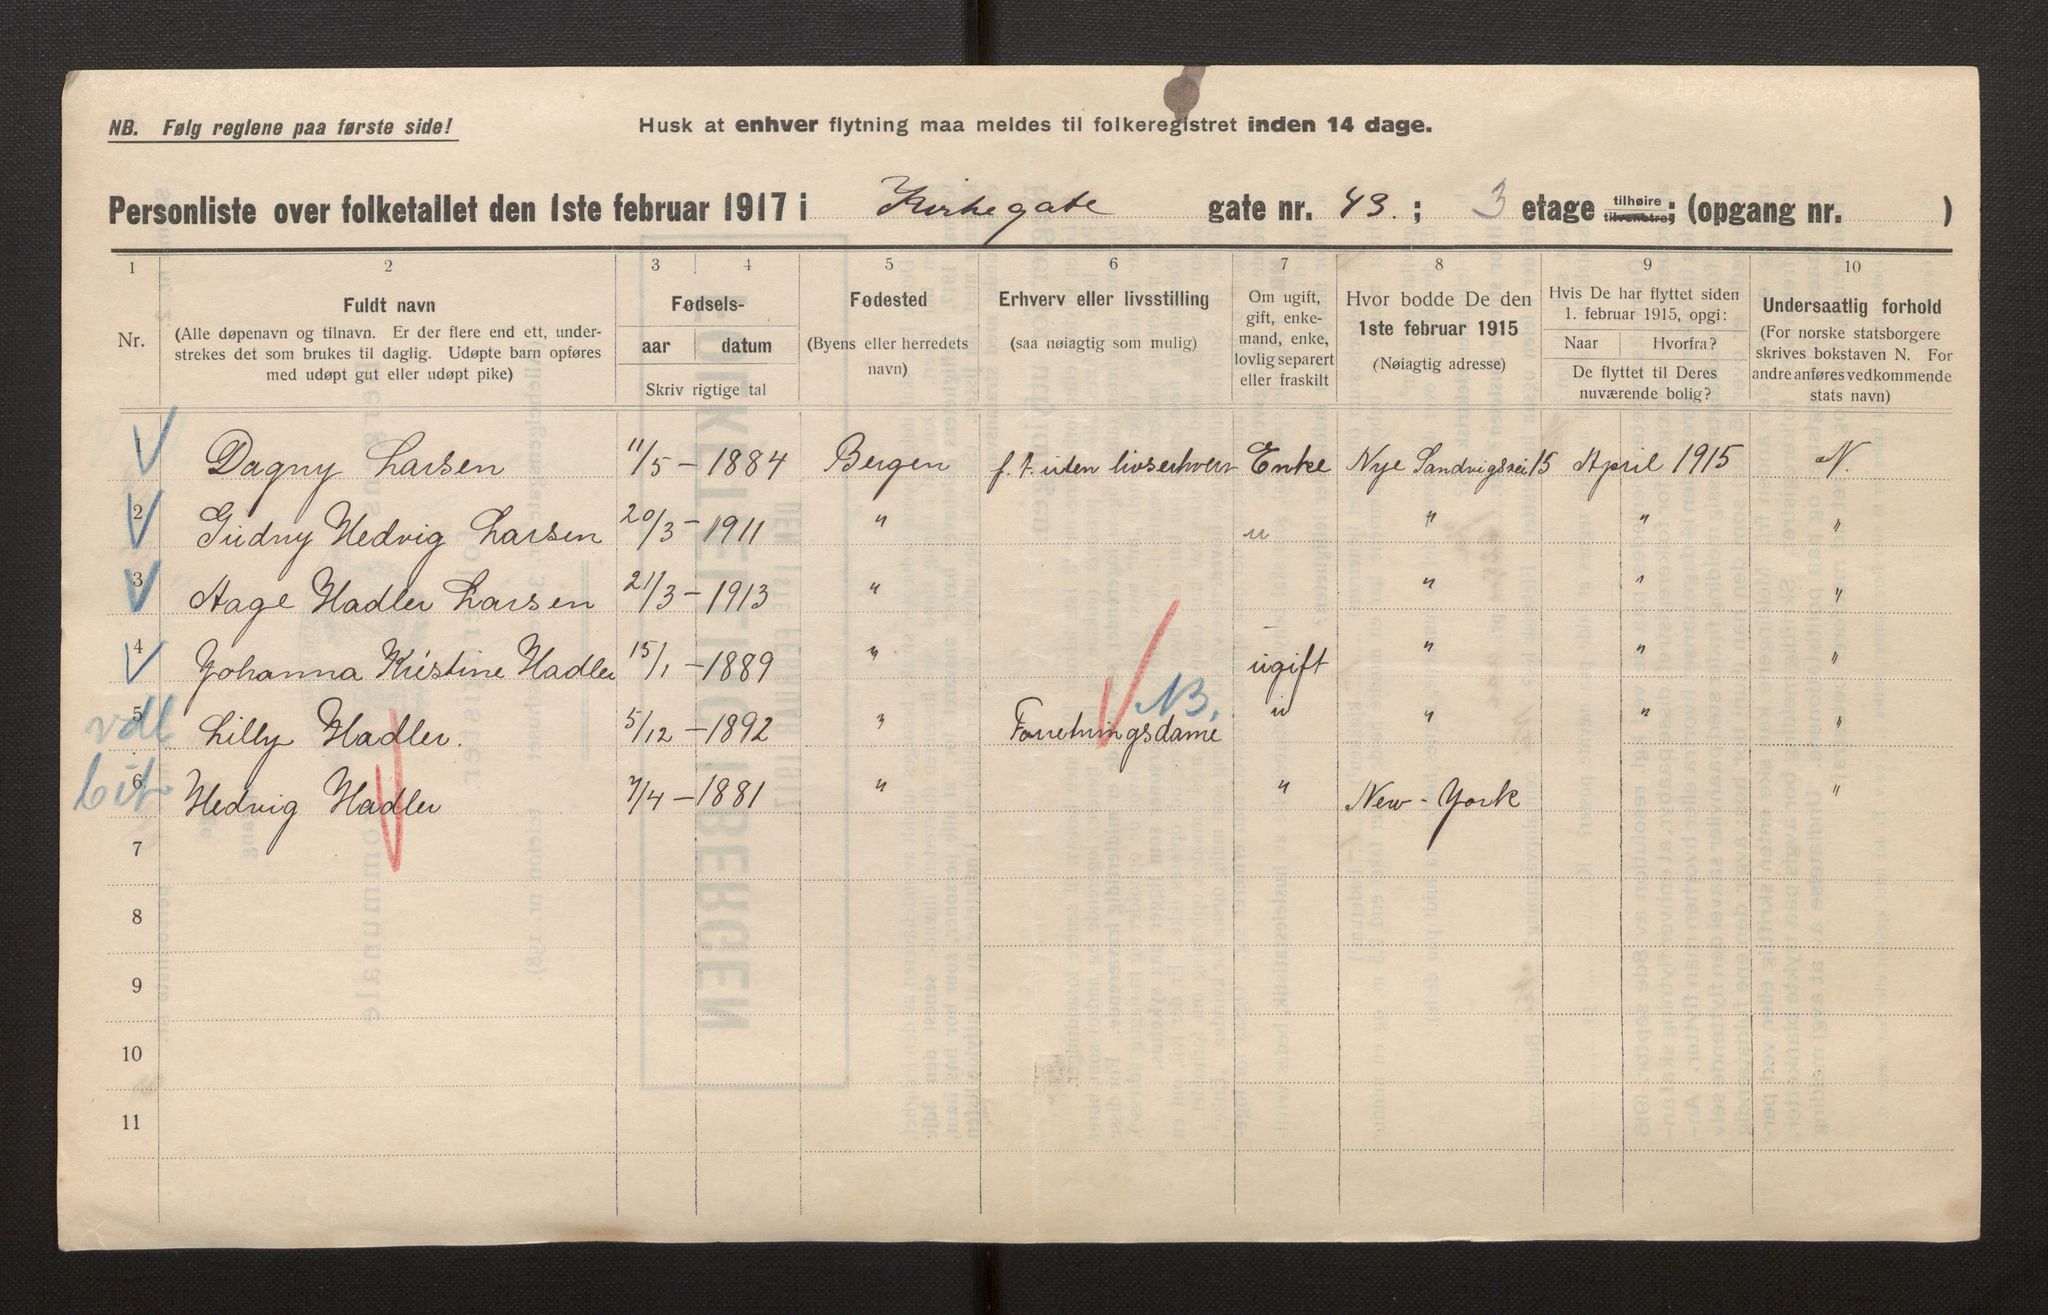 NB. Følg reglene paa første side!
Husk at enhver flytning maa meldes til folkeregistret inden 14 dage.
Personliste over folketallet den 1ste februar 1917 i Kirkegate gate nr. 43. ; 3 etage tilhøire tilvenstre; (opgang nr. )
1 2 3 4 5 6 7 8 9 10
Nr.
Fuldt navn
(Alle døpenavn og tilnavn. Er der flere end ett, under-
strekes det som brukes til daglig. Udøpte barn opføres
med udøpt gut eller udøpt pike)
Fødsels-
aar datum
Skriv rigtige tal
Fødested
(Byens eller herredets
navn)
Erhverv eller livsstilling
(saa nøiagtig som mulig)
Om ugift,
gift, enke-
mand, enke,
lovlig separert
eller fraskilt
Hvor bodde De den
1ste februar 1915
(Nøiagtig adresse)
Hvis De har flyttet siden
1. februar 1915, opgi:
Naar Hvorfra?
De flyttet til Deres
nuværende bolig?
Undersaatlig forhold
(For norske statsborgere
skrives bokstaven N. For
andre anføres vedkommende
stats navn)
1 Dagny Larsen 11/5 - 1884 Bergen f. t. uten livserhverv Enke Nye Sandvigsvei 15 April 1915 N.
2 Gudny Hedvig Larsen 20/3 - 1911 " u " " "
3 Aage Hadler Larsen 21/3 - 1913 " " " "
4 Johanna Kristine Hadler 15/1 - 1889 " ugift " " "
vdl 5 Lilly Hadler. 5/12 - 1892 " Forretningsdame NB. " " " "
bit 6 Hedvig Hadler 7/4 - 1881 " " New-York "
7
8
9
10
11